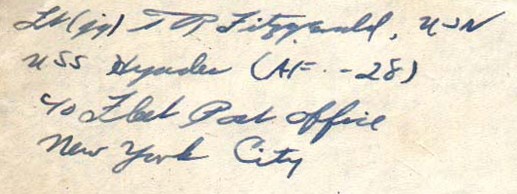 Lt(jg) T R Fitzgerald, USN
USS Hyades (AF-28)
c/o Fleet Post Office
New York City